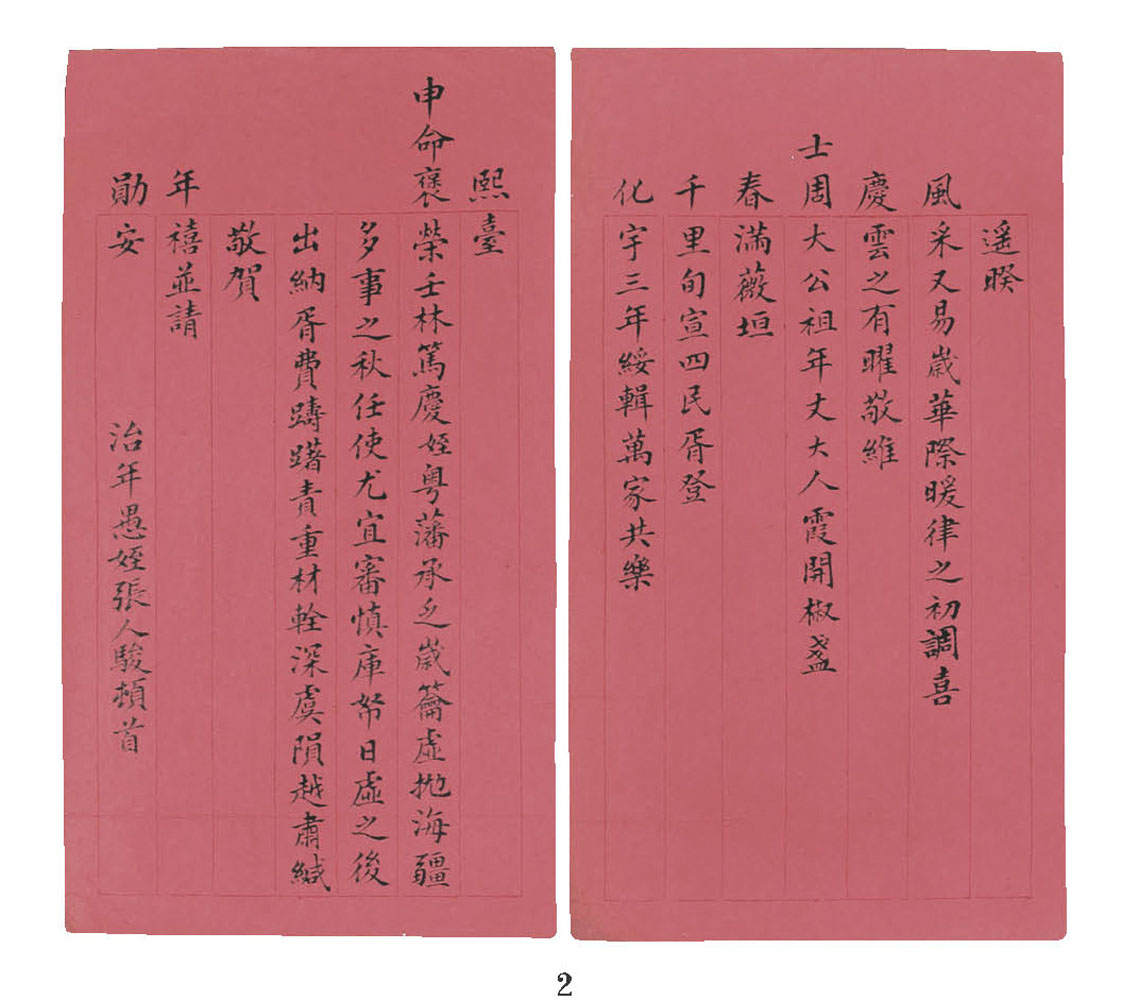 遥暌
風采又易歲華際暖律之初調喜
慶雲之有曜敬維
士周大公祖年丈大人霞開椒盞
春滿薇垣
千里旬宣四民胥登
化宇三年綏輯萬家共樂
熙臺
申命褒榮壬林篤慶姪粵藩承乏歲籥虛拋海疆
多事之秋任使尤宜審慎庫帑日虛之後
出納胥費躊躇責重材輇深虞隕越肅緘
敬賀
年禧並請
勛安 治年愚姪張人駿頓首
2